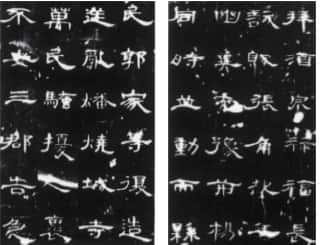 拜酒泉祿福長
訞賊張角起兵
幽冀兗豫荊楊
同時並動而縣
民郭家等復造
逆亂燔燒城寺
萬民騷擾人裹
不安三郡告急